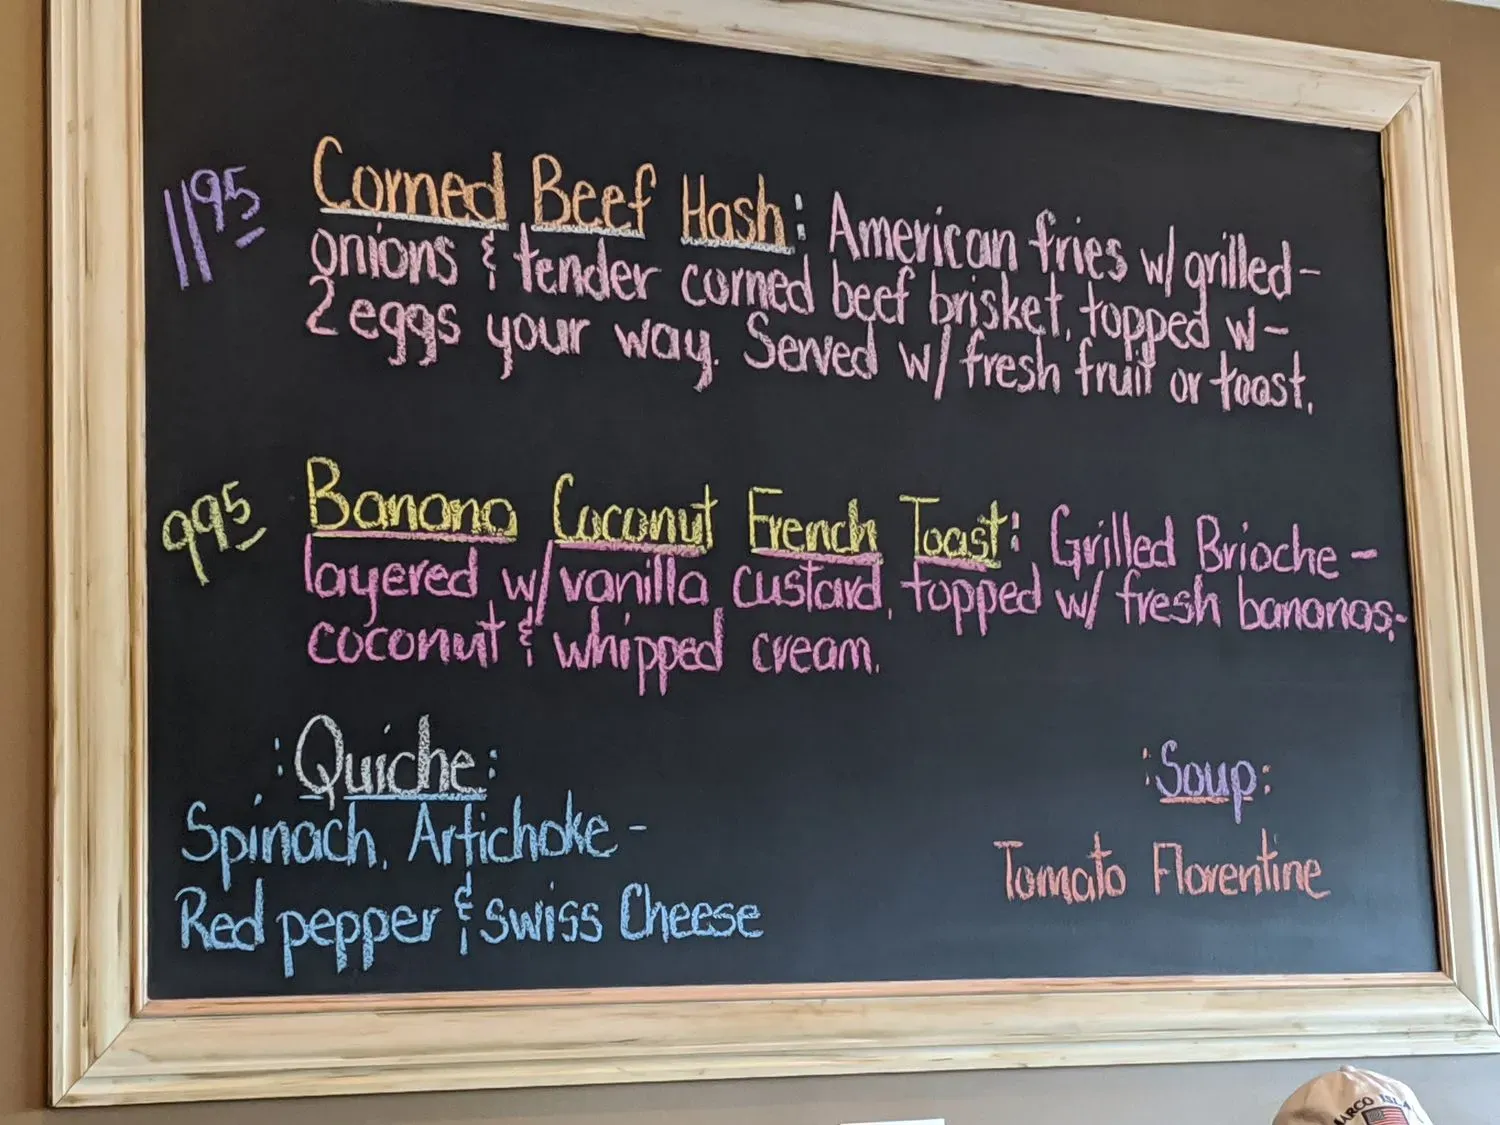 1195 Corned Beef Hash: American fries w/ grilled-
onions & tender corned beef brisket, topped w-
2 eggs your way. Served w/ fresh fruit or toast.
995 Banana Coconut French Toast: Grilled Brioche -
layered w/ vanilla custard, topped w/ fresh bananas,-
coconut & whipped cream.
:Quiche:
Spinach, Artichoke -
Red pepper & swiss Cheese
:Soup:
Tomato Florentine
MARCO ISLA